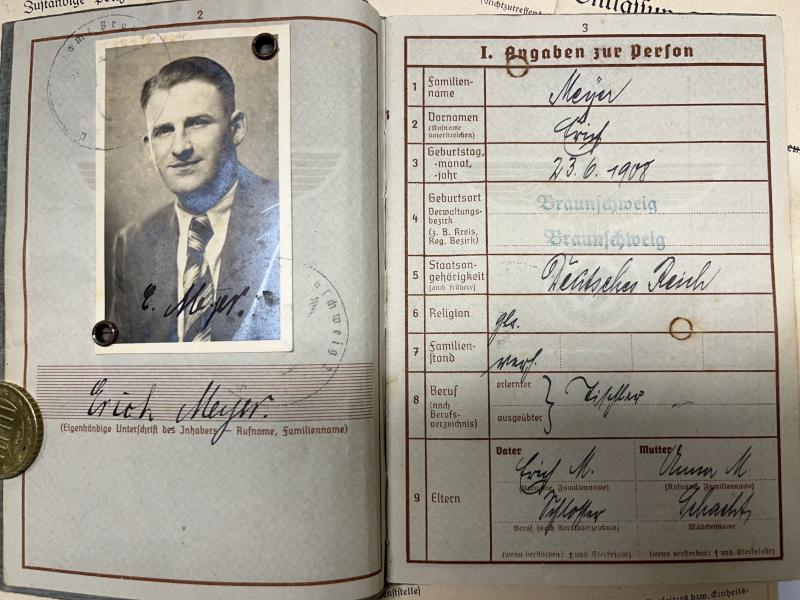 Zuständige
2
E. Meyer.
Erich Meyer.
(Eigenhändige Unterschrift des Inhabers — Rufname, Familienname)
2
3
I. Angaben zur Person
1 Familien-
name
Meyer
2 Vornamen
(Rufname
unterstreichen)
Erich
3 Geburtstag,
-monat,
-jahr
23.6.1908
4 Geburtsort
Verwaltungs-
bezirk
(z. B. Kreis,
Reg. Bezirk)
Braunschweig
Braunschweig
5 Staatsan-
gehörigkeit
(auch frühere)
Deutsches Reich
6 Religion
7 Familien-
stand
verh.
8 Beruf
(nach
Berufs-
verzeichnis)
erlernter
ausgeübter
Tischler
9 Eltern
Vater
Erich M.
(Rufname, Familienname)
Schlosser
Beruf (nach Berufsverzeichnis)
(wenn verstorben: † und Sterbejahr)
Mutter
Anna M.
(Rufname, Familienname)
Schacht
Mädchenname
(wenn verstorben: † und Sterbejahr)